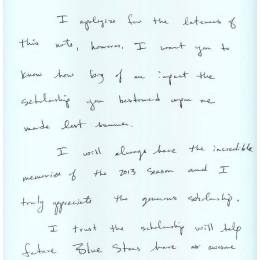 I apologize for the lateness of
this note, however, I want you to
know how big of an impact the
scholarship you bestowed upon me
made last summer.
I will always have the incredible
memories of the 2013 season and I
truly appreciate the generous scholarship.
I trust the scholarship will help
future Blue Stars have as awesome